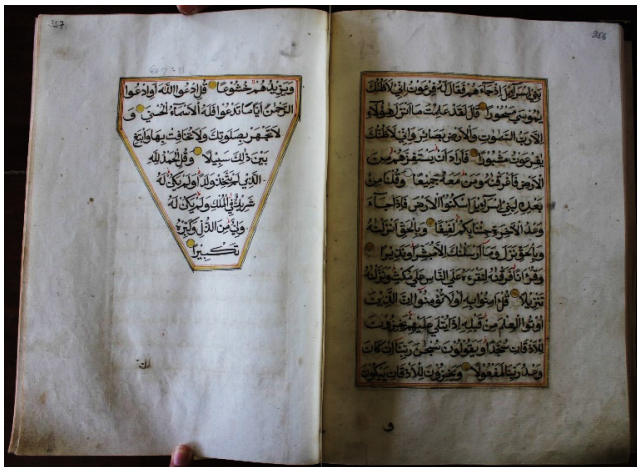 356
بَنِي إِسْرَائِيلَ إِذْ جَاءَهُمْ فَقَالَ لَهُ فِرْعَوْنُ إِنِّي لَأَظُنُّكَ
يَمُوسَى مَسْحُورًا قَالَ لَقَدْ عَلِمْتَ مَا أَنْزَلَ هَؤُلَاءِ
إِلَّا رَبُّ السَّمَوَتِ وَالْأَرْضِ بَصَائِرَ وَإِنِّي لَأَظُنُّكَ
يَفِرْعَوْنُ مَثْبُورًا فَأَرَادَ أَنْ يَسْتَفِزَّهُمْ مِنَ
الْأَرْضِ فَأَغْرَقْنَهُ وَمَنْ مَعَهُ جَمِيعًا وَقُلْنَا مِنْ
بَعْدِهِ لِبَنِي إِسْرَائِيلَ اسْكُنُوا الْأَرْضَ فَإِذَا جَاءَ
وَعْدُ الْآخِرَةِ جِئْنَا بِكُمْ لَفِيفًا وَبِالْحَقِّ أَنْزَلْنَهُ
وَبِالْحَقِّ نَزَلَ وَمَا أَرْسَلْنَكَ إِلَّا مُبَشِّرًا وَنَذِيرًا
وَقُرْآنًا فَرَقْنَهُ لِتَقْرَأَهُ عَلَى النَّاسِ عَلَى مُكْثٍ وَنَزَّلْنَهُ
تَنْزِيلًا قُلْ آمِنُوا بِهِ أَوْ لَا تُؤْمِنُوا إِنَّ الَّذِينَ
أُوتُوا الْعِلْمَ مِنْ قَبْلِهِ إِذَا يُتْلَى عَلَيْهِمْ يَخِرُّونَ
لِلْأَذْقَانِ سُجَّدًا وَيَقُولُونَ سُبْحَنَ رَبِّنَا إِنْ كَانَ
وَعْدُ رَبِّنَا لَمَفْعُولًا وَيَخِرُّونَ لِلْأَذْقَانِ يَبْكُونَ
و
357
وَيَزِيدُهُمْ خُشُوعًا قُلِ ادْعُوا اللَّهَ أَوِ ادْعُوا
الرَّحْمَنَ أَيًّا مَا تَدْعُوا فَلَهُ الْأَسْمَاءُ الْحُسْنَى وَ
لَا تَجْهَرْ بِصَلَوتِكَ وَلَا تُخَافِتْ بِهَا وَابْتَغِ
بَيْنَ ذَلِكَ سَبِيلًا وَقُلِ الْحَمْدُ لِلَّهِ
الَّذِي لَمْ يَتَّخِذْ وَلَدًا وَلَمْ يَكُنْ لَهُ
شَرِيكٌ فِي الْمُلْكِ وَلَمْ يَكُنْ لَهُ
وَلِيٌّ مِنَ الذُّلِّ وَكَبِّرْهُ
تَكْبِيرًا